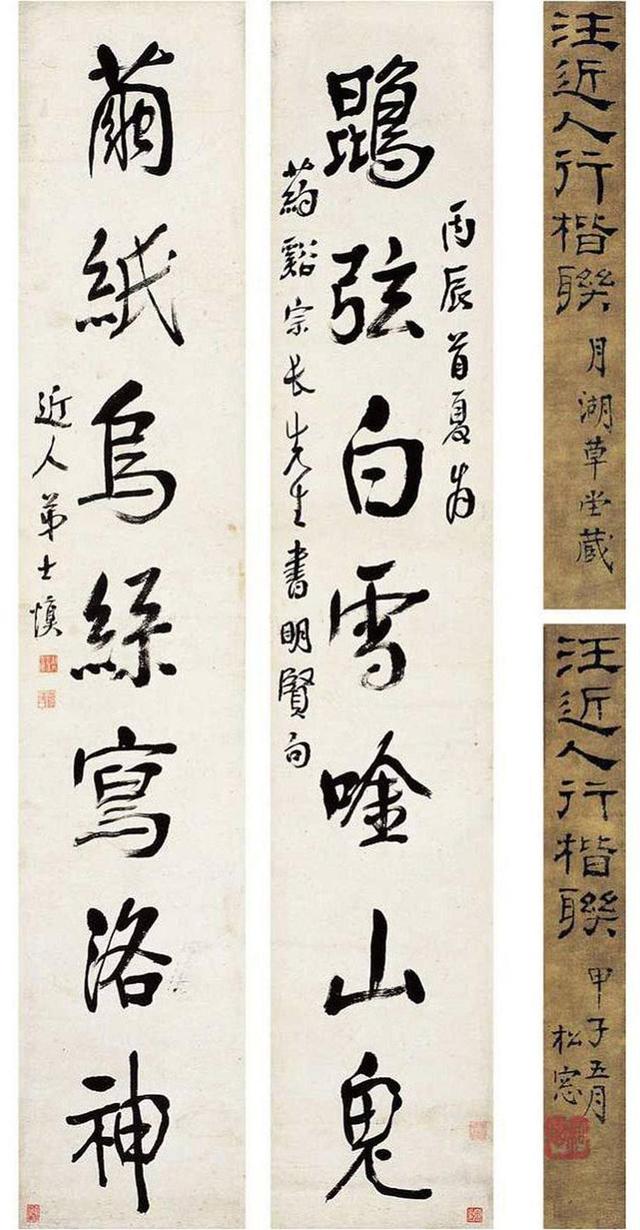 汪近人行楷聯
月湖草堂藏
汪近人行楷聯
甲子五月
松窓
丙辰首夏為
鵾弦白雪唫山鬼
葯谿宗長先生書明賢句
繭紙烏絲寫洛神
近人弟士慎